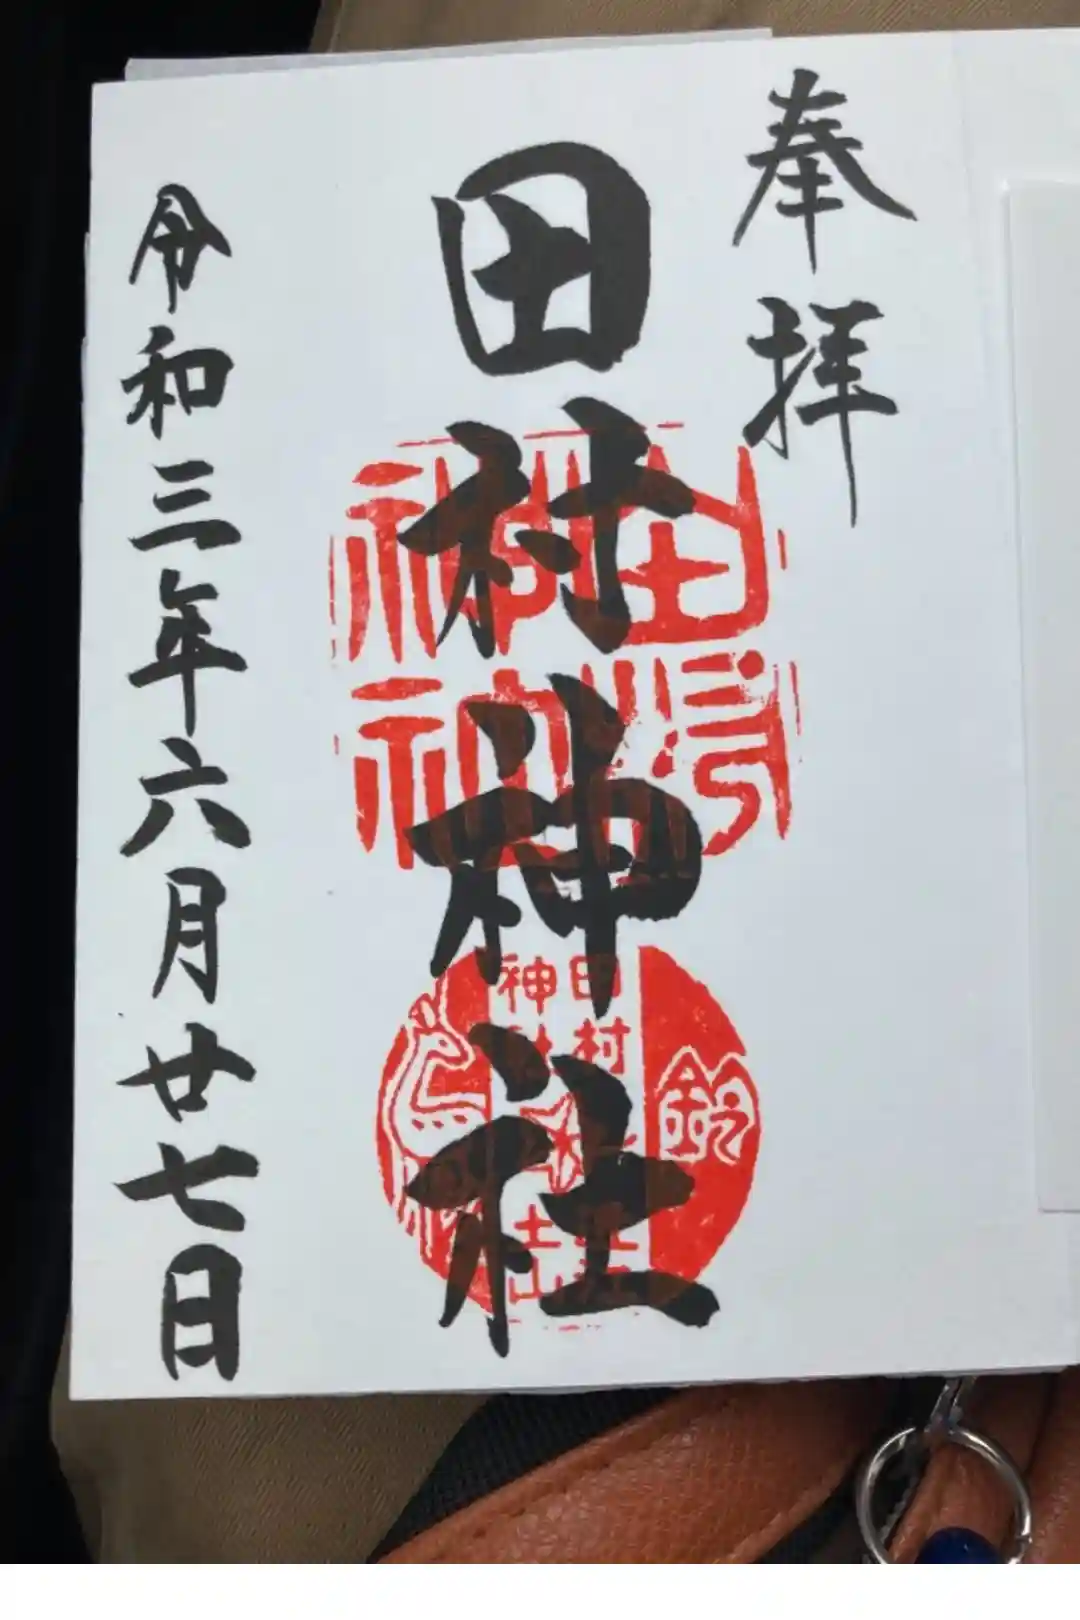 奉拝
田村神社
令和三年六月廿七日
田村
神社
鈴
田村
神社
土山